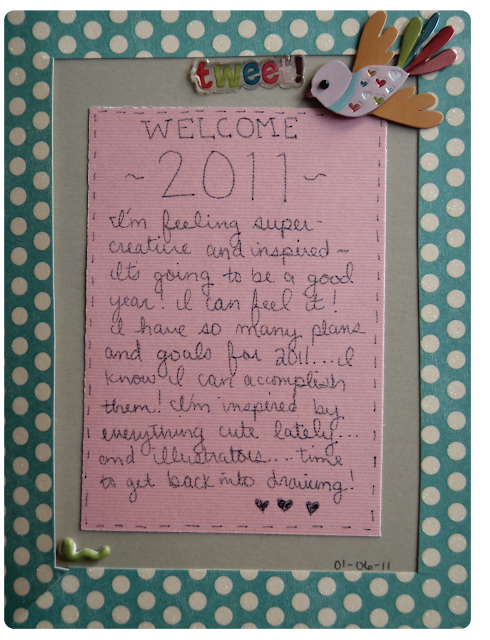 tweet!
WELCOME
~2011~
I'm feeling super-
creative and inspired-
It's going to be a good
year! I can feel it!
I have so many plans
and goals for 2011...I
know I can accomplish
them! I'm inspired by
everything cute lately...
and illustrators...time
to get back into drawing!
01-06-11